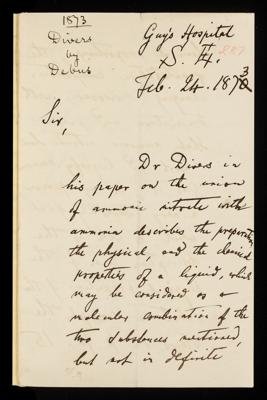 1873
Divers
by
Debus
Guy's Hospital
S. E.
Feb. 24. 1873
Sir,
Dr Divers in
his paper on the union
of ammonic nitrate with
ammonia describes the preparation
the physical, and the chemical
properties of a liquid, which
may be considered as a
molecular combination of the
two substances mentioned,
but not in definite